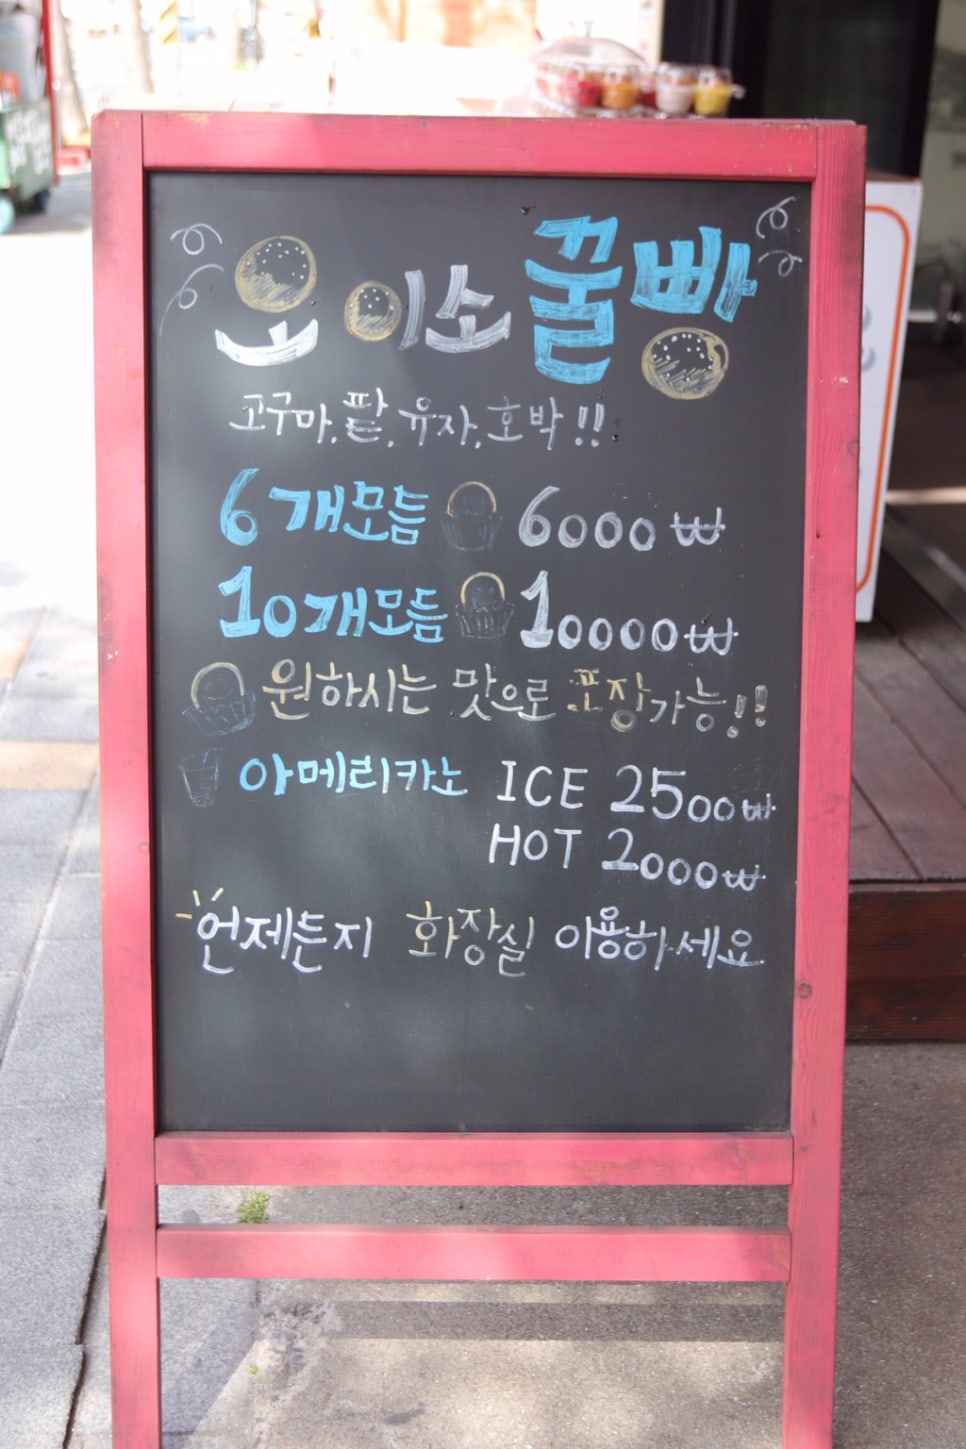 오이소 꿀빵
고구마, 팥, 유자, 호박!!
6개모듬 6000₩
10개모듬 10000₩
원하시는 맛으로 포장가능!!
아메리카노 ICE 2500₩
HOT 2000₩
언제든지 화장실 이용하세요